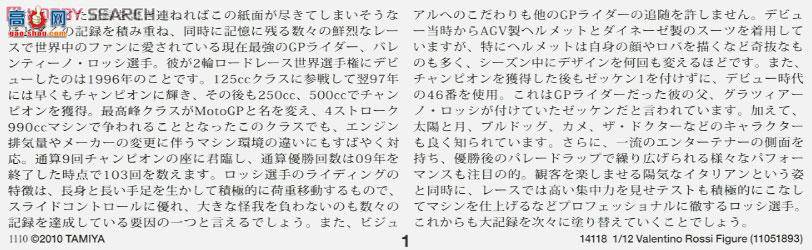 HOBBY SEARCH
連ねればこの紙面が尽きてしまいそうな
記録を積み重ね、同時に記憶に残る数々の鮮烈なレー
スで世界中のファンに愛されている現在最強のGPライダー、バレ
ンティーノ・ロッシ選手。彼が2輪ロードレース世界選手権にデビ
ューしたのは1996年のことです。125ccクラスに参戦して翌97年
には早くもチャンピオンに輝き、その後も250cc、500ccでチャン
ピオンを獲得。最高峰クラスがMotoGPと名を変え、4ストローク
990ccマシンで争われることとなったこのクラスでも、エンジン
排気量やメーカーの変更に伴うマシン環境の違いにもすばやく対
応。通算9回チャンピオンの座に君臨し、通算優勝回数は09年を
終了した時点で103回を数えます。ロッシ選手のライディングの
特徴は、長身と長い手足を生かして積極的に荷重移動するもので、
スライドコントロールに優れ、大きな怪我を負わないのも数々の
記録を達成している要因の一つと言えるでしょう。また、ビジュ
アルへのこだわりも他のGPライダーの追随を許しません。デビュ
ー当時からAGV製ヘルメットとダイネーゼ製のスーツを着用して
いますが、特にヘルメットは自身の顔やロバを描くなど奇抜なも
のも多く、シーズン中にデザインを何回も変えるほどです。また、
チャンピオンを獲得した後もゼッケン1を付けずに、デビュー時代
の46番を使用。これはGPライダーだった彼の父、グラツィアー
ノ・ロッシが付けていたゼッケンだと言われています。加えて、
太陽と月、ブルドッグ、カメ、ザ・ドクターなどのキャラクター
も良く知られています。さらに、一流のエンターテナーの側面を
持ち、優勝後のパレードラップで繰り広げられる様々なパフォー
マンスも注目の的。観客を楽しませる陽気なイタリアンという姿
と同時に、レースでは高い集中力を見せテストも積極的にこなし
てマシンを仕上げるなどプロフェッショナルに徹するロッシ選手。
これからも大記録を次々に塗り替えていくことでしょう。
1110 ©2010 TAMIYA
1
14118 1/12 Valentino Rossi Figure (11051893)